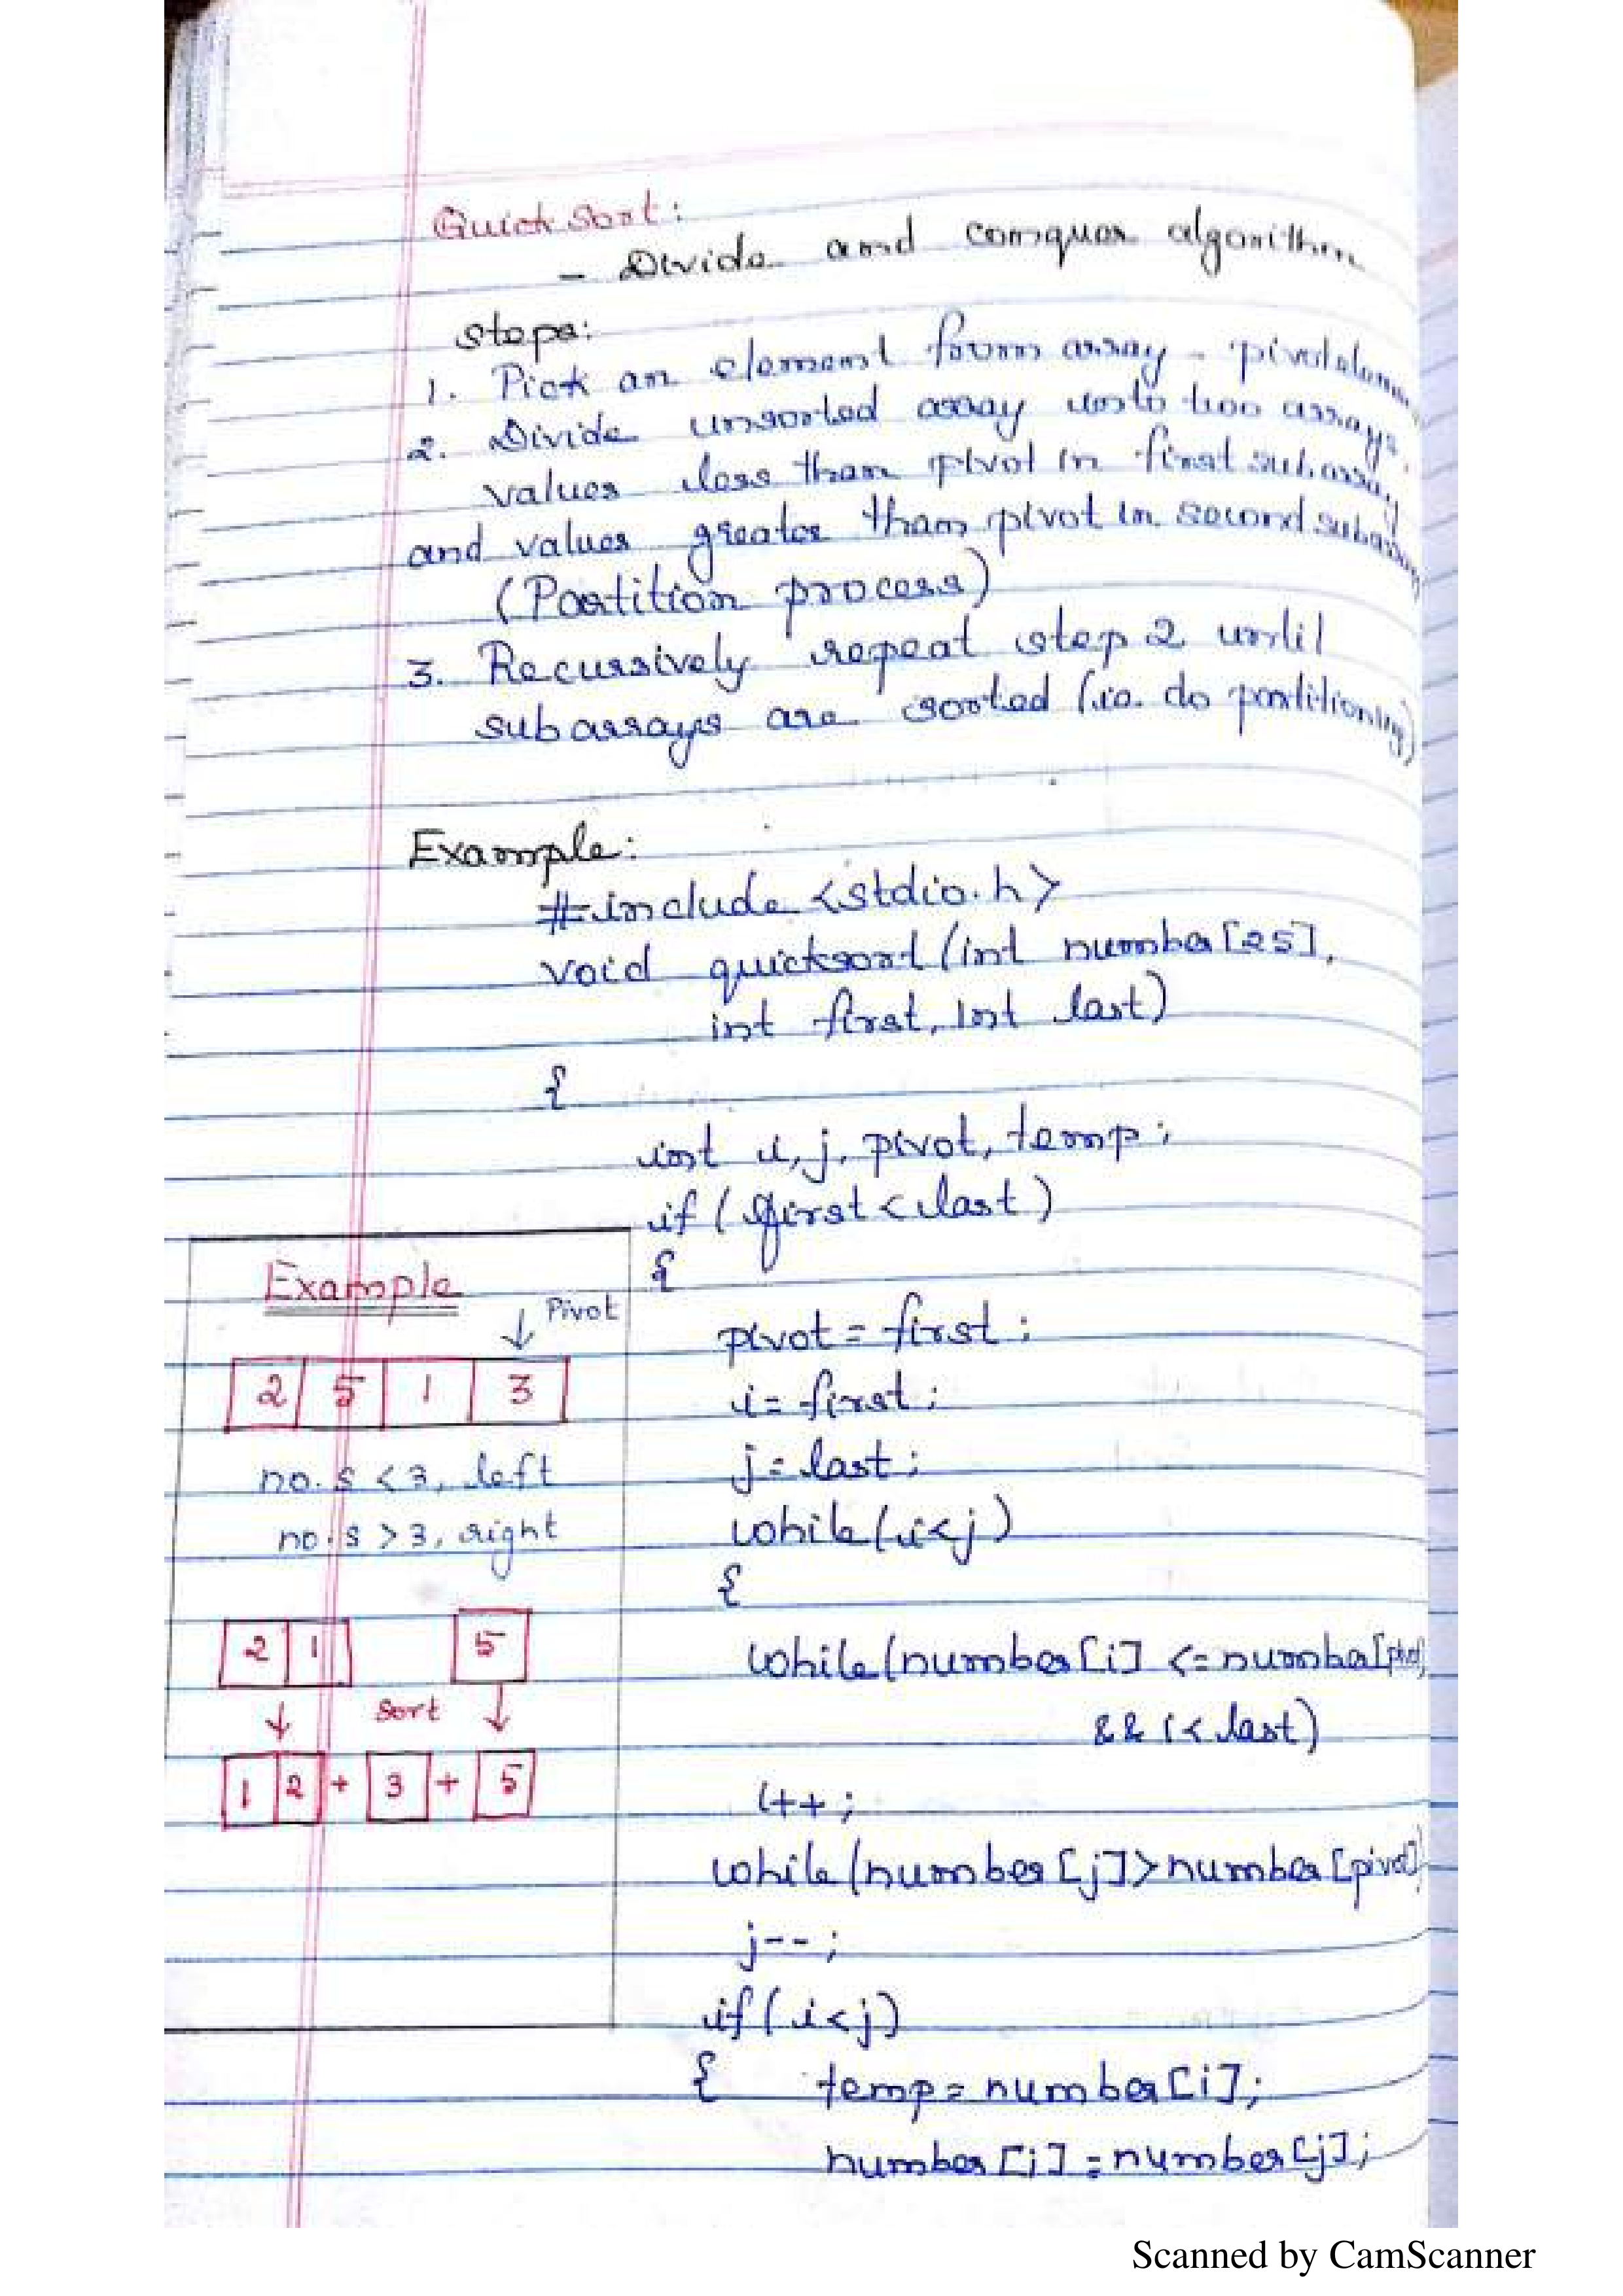 Quick sort:
- Divide and conquer algorithm
steps:
1. Pick an element from array - pivot element
2. Divide unsorted array into two arrays,
values less than pivot in first sub array
and values greater than pivot in second sub array
(Partition process)
3. Recursively repeat step 2 until
subarrays are sorted (ie. do partitioning)
Example:
#include <stdio.h>
void quicksort(int number[25],
int first, int last)
{
int i, j, pivot, temp;
if (first < last)
{
pivot = first;
i = first;
j = last;
while(i<j)
{
while(number[i] <= number[pivot]
&& i < last)
i++;
while(number[j]>number[pivot])
j--;
if(i<j)
{ temp = number[i];
number[i] = number[j];
Example
↓ Pivot
2 5 1 3
no.s < 3, left
no.s > 3, right
2 1 5
↓ Sort ↓
1 2 + 3 + 5
Scanned by CamScanner